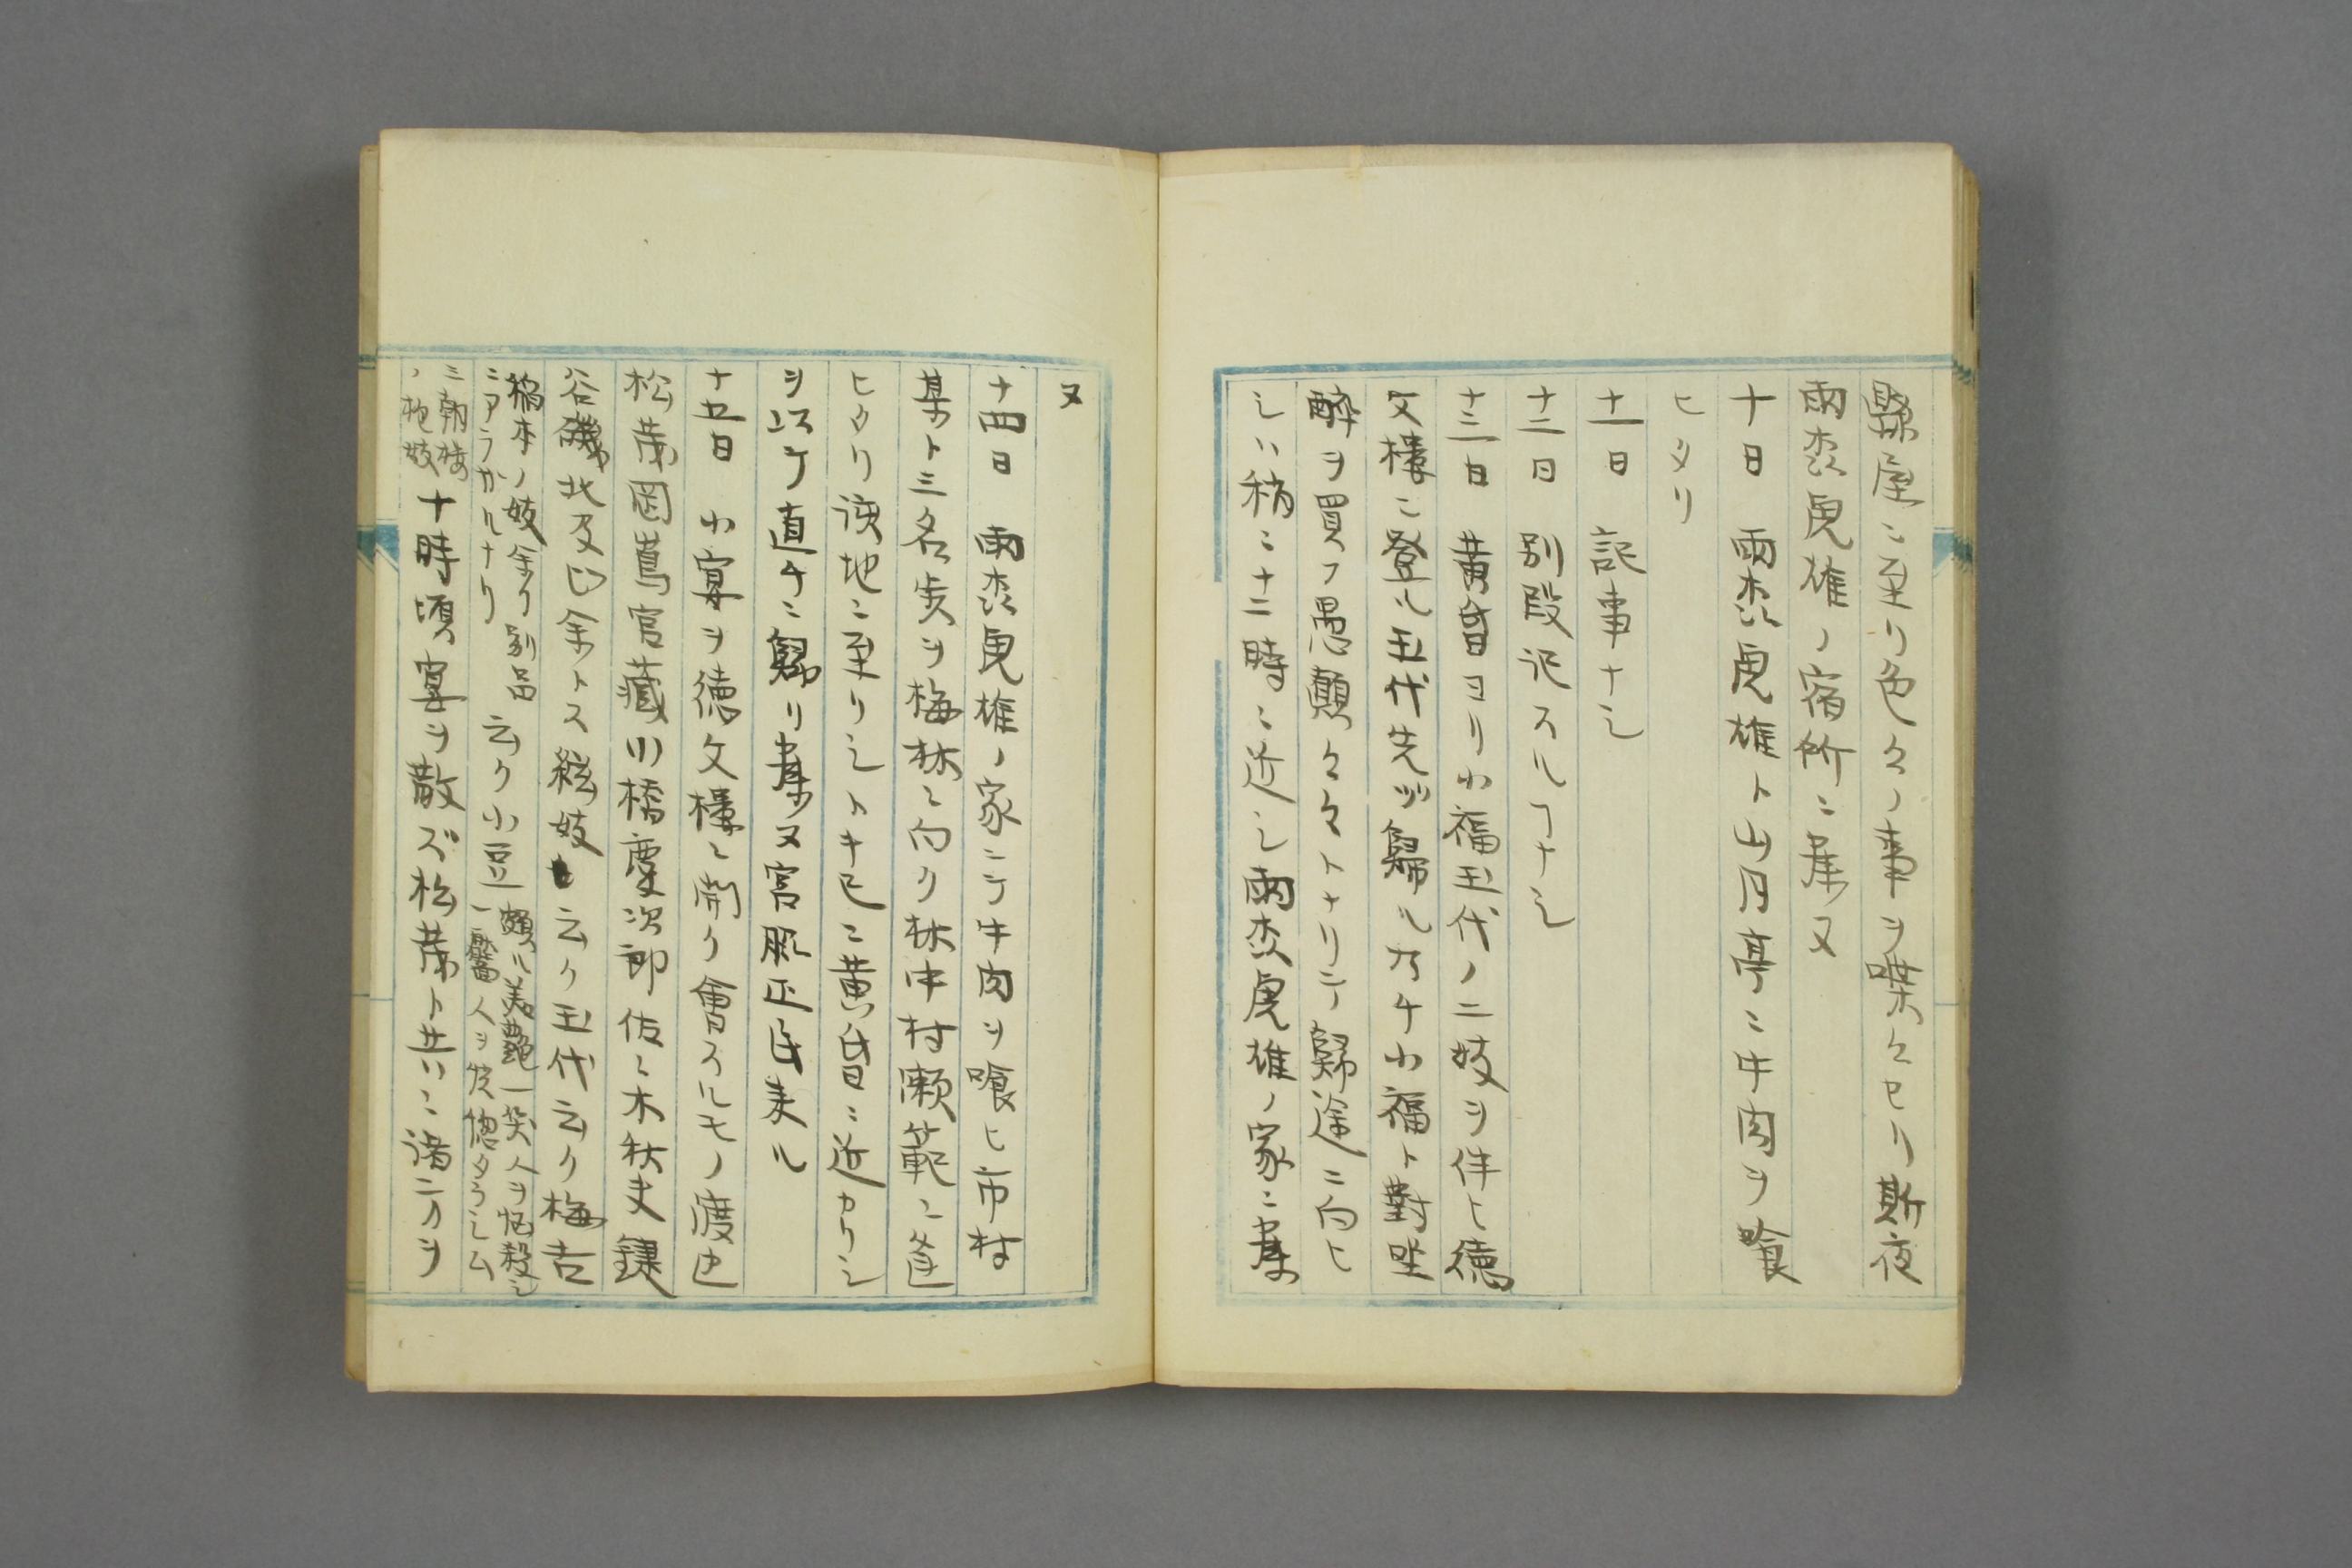 縣屋ニ至リ色々ノ事ヲ喋々セリ斯夜
雨森虎雄ノ宿所ニ寐ヌ
十日　雨森虎雄ト山月亭ニ牛肉ヲ喰
ヒタリ
十一日　記事ナシ
十二日　別段記スルヿナシ
十三日　黄昏ヨリ小福玉代ノ二妓ヲ伴ヒ徳
文樓ニ登ル玉代先ツ歸ル乃チ小福ト對坐
酔ヲ買フ愚顛々々トナリテ歸途ニ向ヒ
シハ稍ニ十二時ニ近シ雨森虎雄ノ家ニ寐
ヌ
十四日　雨森虎雄ノ家ニテ牛肉ヲ喰ヒ市村
某ト三名歩ヲ梅林ニ向ク林中村瀬範ニ逢
ヒタリ該地ニ至リシトキ已ニ黄昏ニ近カリシ
ヲ以テ直チニ歸リ寐ヌ宮脇正氏来ル
十五日　小宴ヲ徳文樓ニ開ク會スルモノ渡辺
松茂岡蔦官藏川橋慶次郎佐々木秋夫鍵
谷磯北及ヒ余トス絃妓云ク玉代云ク梅吉
橋本ノ妓余リ別品
ニアラカルナリ
云ク小豆
頗ル美艶一笑人ヲ悩殺シ
一顰人ヲ恍惚タラシム
三朝樓
ノ抱妓
十時頃宴ヲ散ズ松茂ト共ニ諸方ヲ